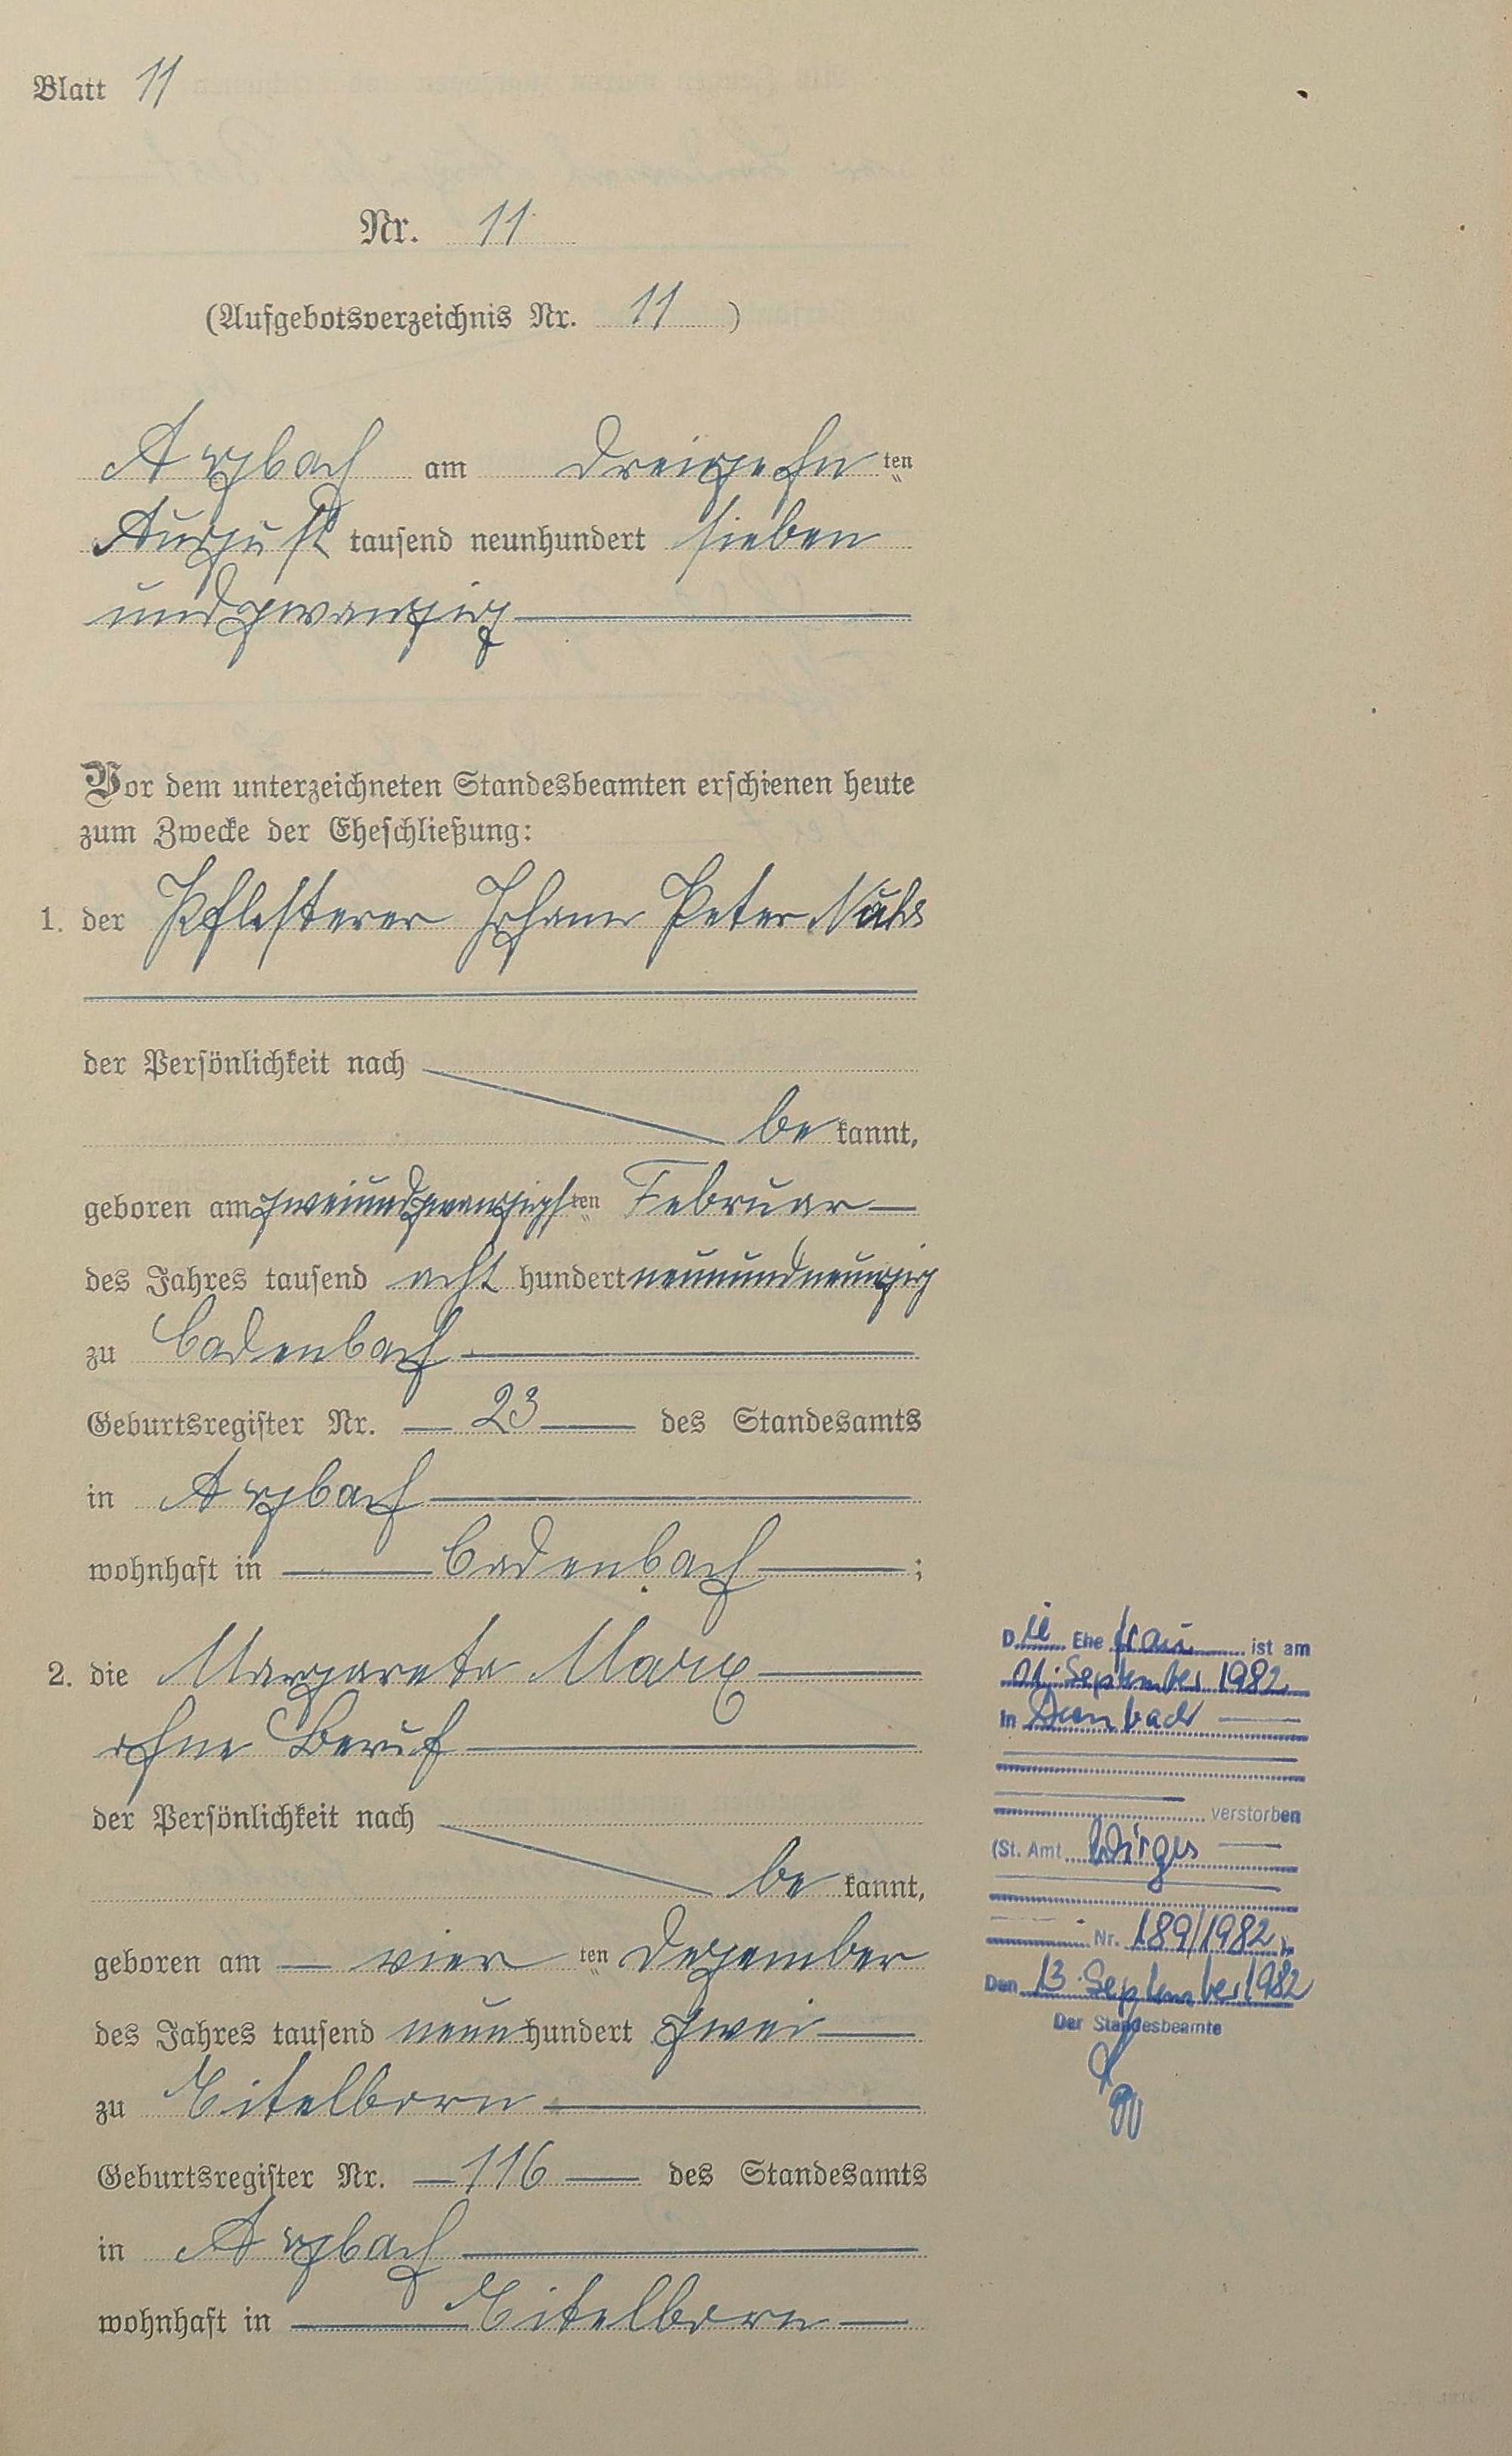 Blatt 11
Nr. 11
(Aufgebotsverzeichnis Nr. 11 )
Arzbach am dreizehn ten
August tausend neunhundert sieben
undzwanzig
Vor dem unterzeichneten Standesbeamten erschienen heute
zum Zwecke der Eheschließung:
1. der Pflasterer Johann Peter
der Persönlichkeit nach
be kannt,
geboren am zweiundzwanzigsten Februar
des Jahres tausend acht hundert neunundneunzig
zu Cadenbach
Geburtsregister Nr. 23 des Standesamts
in Arzbach
wohnhaft in Cadenbach ;
2. die Margareta Marx
ohne Beruf
der Persönlichkeit nach
be kannt,
geboren am vier ten Dezember
des Jahres tausend neun hundert zwei
zu Eitelborn
Geburtsregister Nr. 116 des Standesamts
in Arzbach
wohnhaft in Eitelborn
Die Ehefrau ist am
01. September 1982
in Dernbach
verstorben
(St. Amt Wirges
Nr. 189/1982)
Den 13. September 1982
Der Standesbeamte